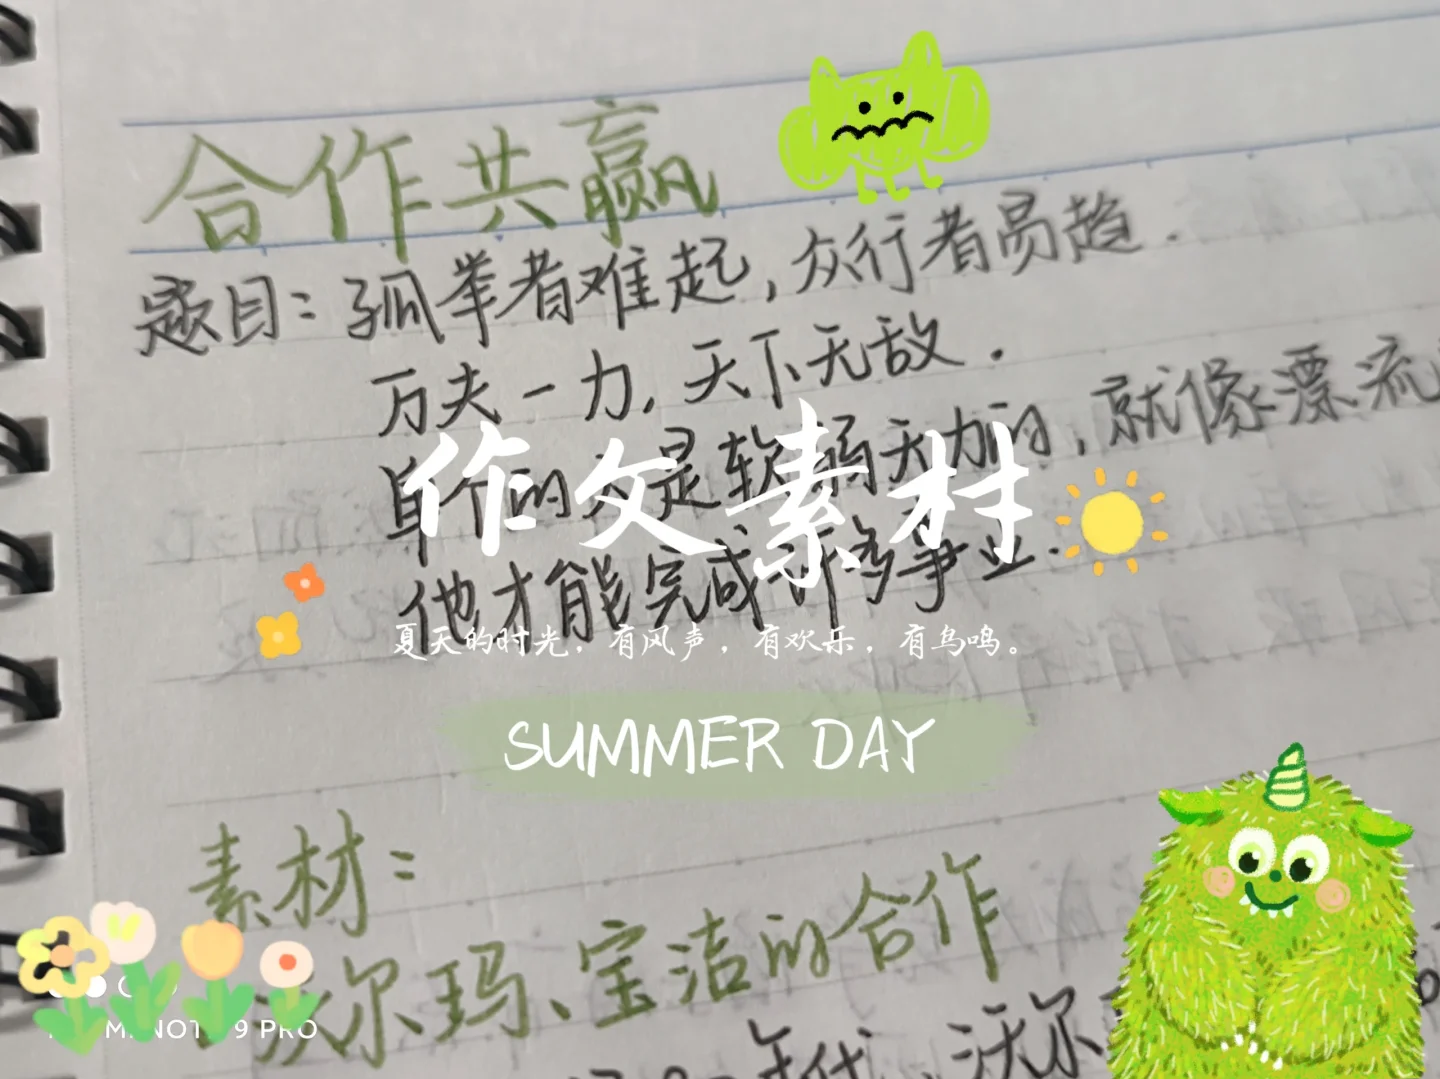 合作共赢
题目：孤举者难起，众行者易趋．
万夫一力，天下无敌．
单个的人是软弱无力的，就像漂流
作文素材
他才能完成许多事业．
夏天的时光，有风声，有欢乐，有鸟鸣。
SUMMER DAY
素材：
沃尔玛、宝洁的合作
年代，沃尔
9 PRO